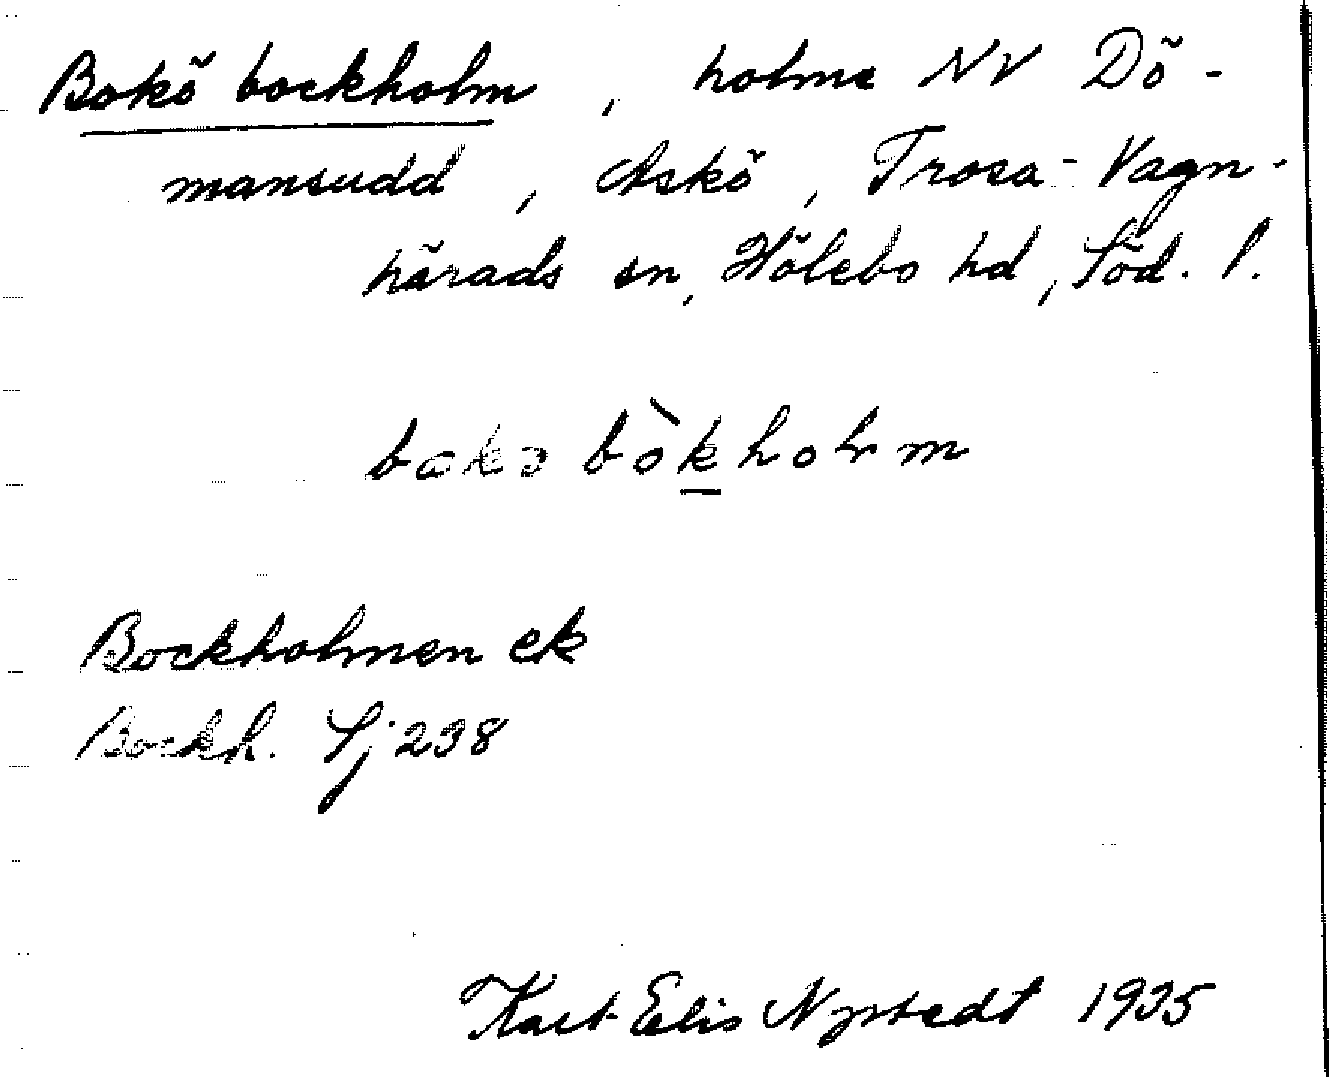 Bokö bockholm, holme NV Dö-
mansudd, Askö, Trosa-Vagn-
härads sn, Hölebo hd, Söd. l.
bokə bòkholm
Bockholmen ek
Bockh. Sj 238
Karl-Elis Nystedt 1935